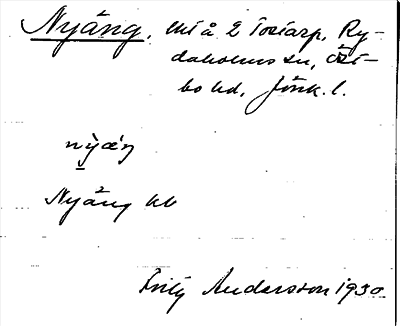 Nyäng, lht å 2 Torarp, Ry-
daholms sn, Öst-
bo hd, Jönk. l.
nỳæ'ŋ
Nyäng kb
Fritz Andersson 1930